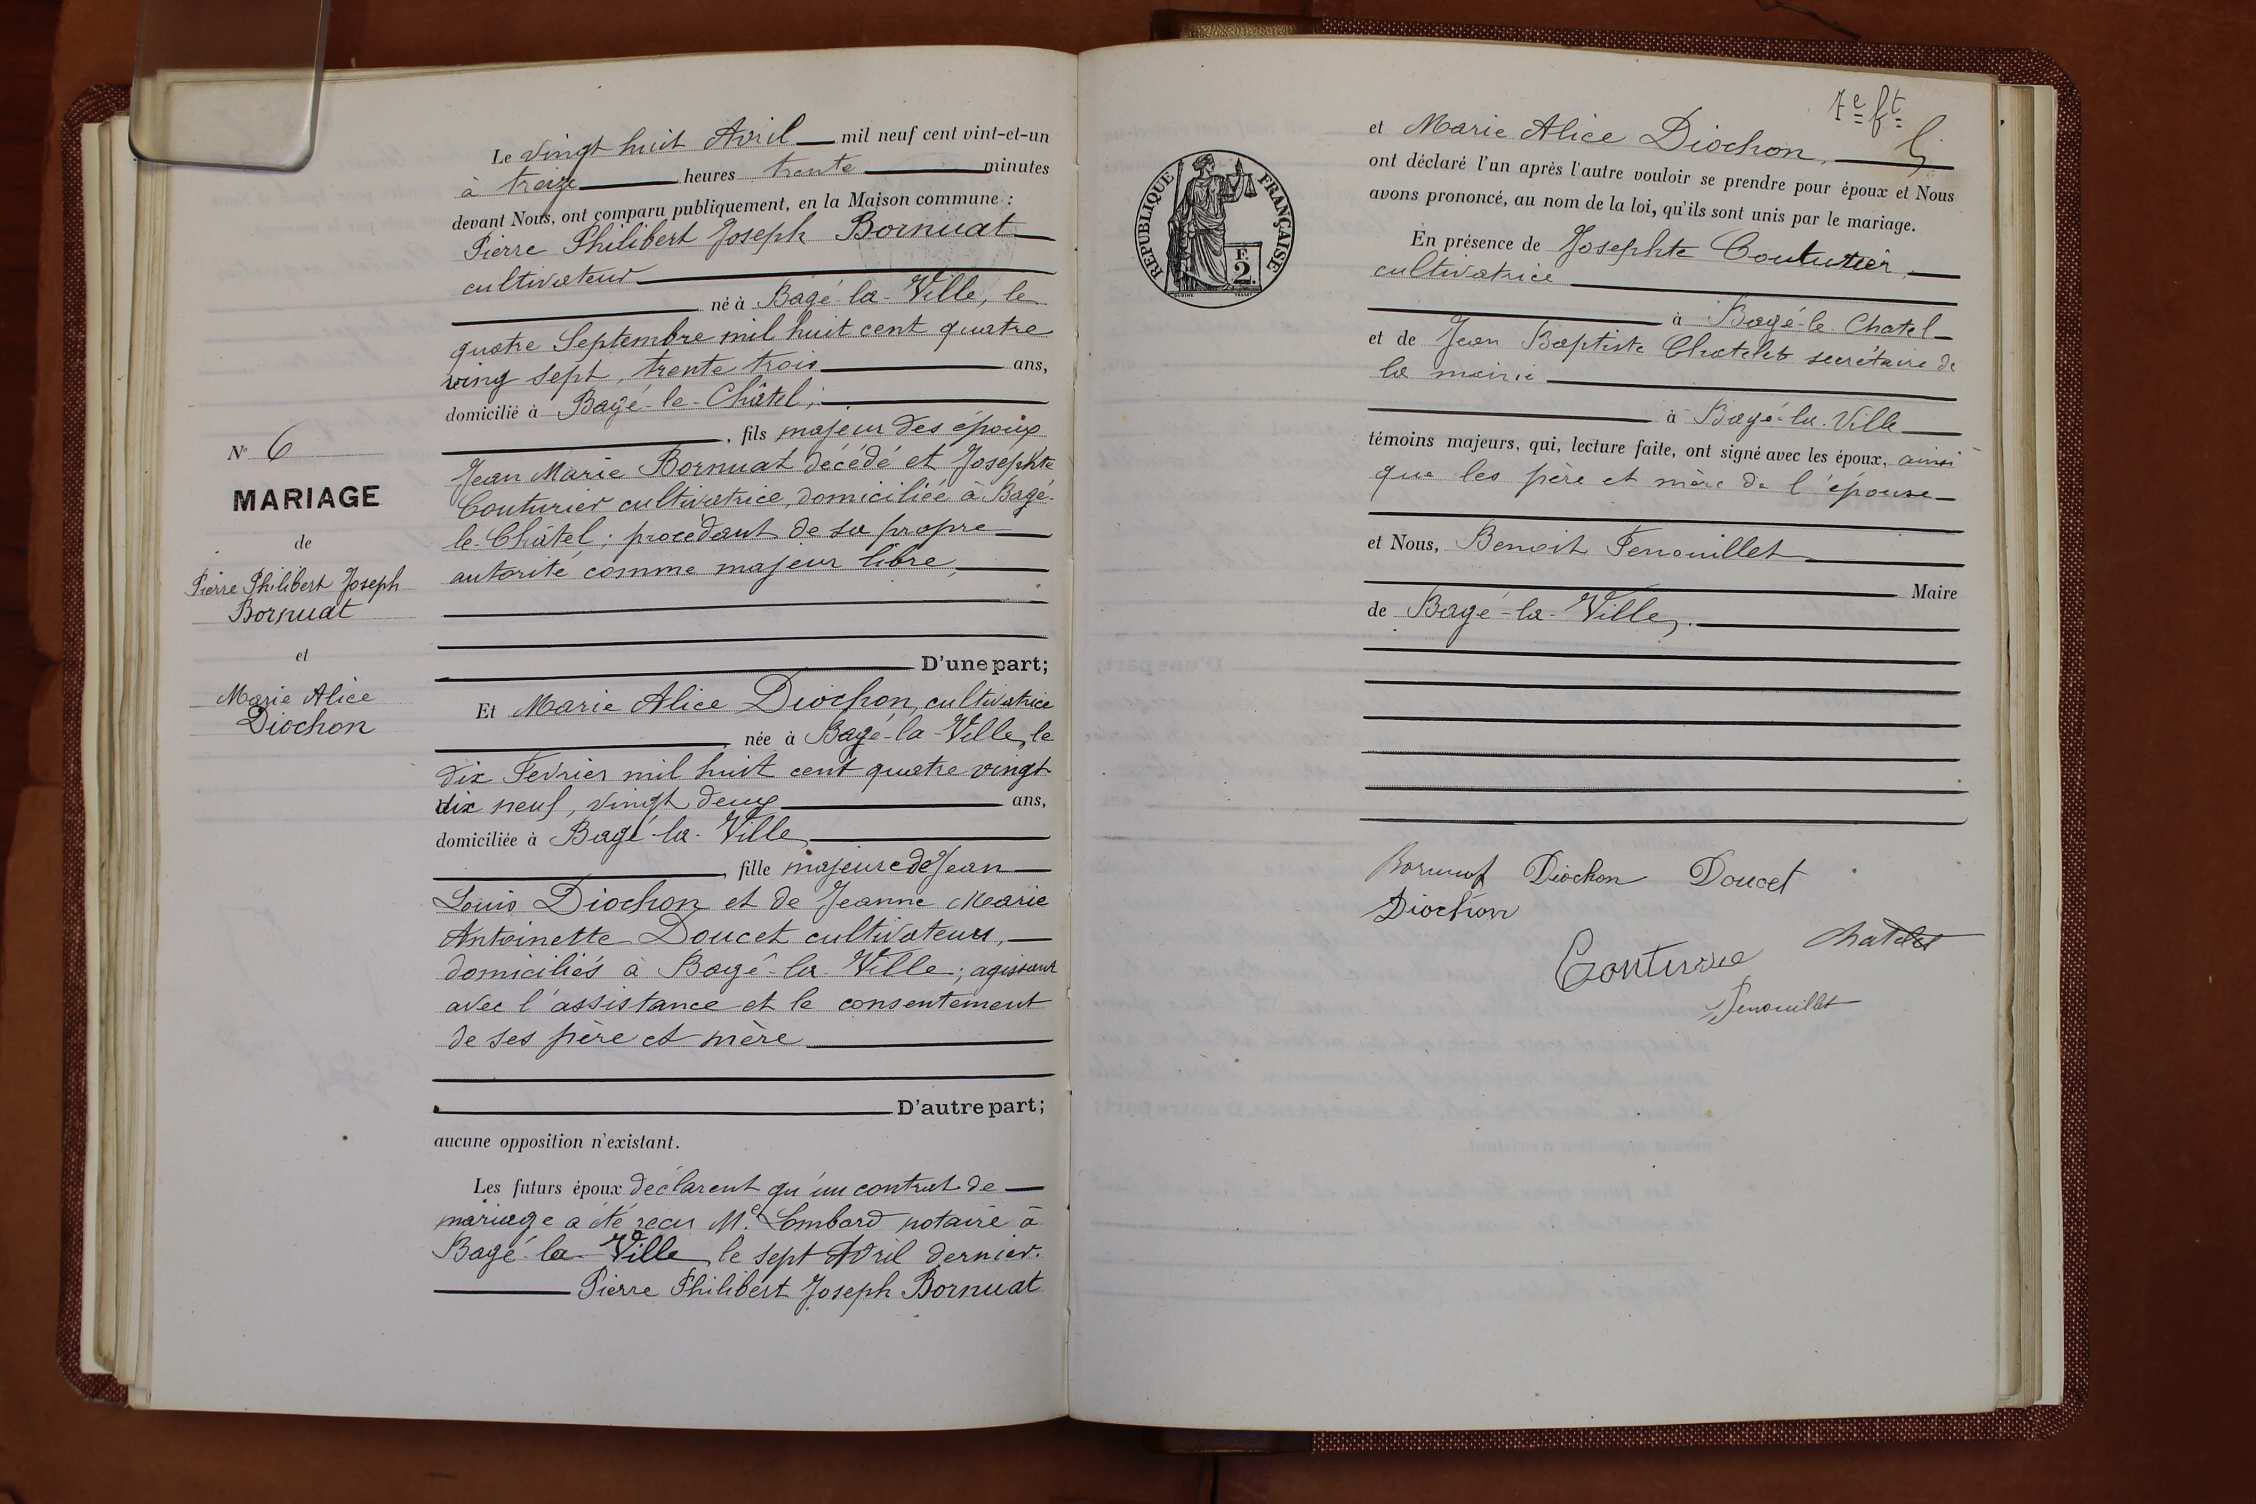 Le vingt huit Avril mil neuf cent vint-et-un
à treize heures trente minutes
devant Nous, ont comparu publiquement, en la Maison commune :
Pierre Philibert Joseph Bornuat
cultivateur
né à Bagé-la-Ville, le
quatre Septembre mil huit cent quatre
ving sept, trente trois ans,
domicilié à Bagé-le-Châtel,
, fils majeur des époux
Jean Marie Bornuat décédé et Josephte
Couturier cultivatrice, domiciliée à Bagé-
le-Châtel ; procédant de sa propre
autorité comme majeur libre,
D'une part;
Et Marie Alice Diochon, cultivatrice
née à Bagé-la-Ville, le
dix Fevrier mil huit cent quatre vingt
dix neuf, vingt deux ans,
domiciliée à Bagé-la-Ville
, fille majeure de Jean
Louis Diochon et de Jeanne Marie
Antoinette Doucet cultivateurs,
domiciliés à Bagé-la-Ville ; agissant
avec l'assistance et le consentement
de ses père et mère
D'autre part;
aucune opposition n'existant.
Les futurs époux déclarent qu'un contrat de
mariage a été reçu Me. Lombard notaire à
Bagé-la-Ville, le sept Avril dernier.
Pierre Philibert Joseph Bornuat
N° 6
MARIAGE
de
Pierre Philibert Joseph
Bornuat
et
Marie Alice
Diochon
7e ft
5
REPUBLIQUE FRANÇAISE
F
2.
et Marie Alice Diochon,
ont déclaré l'un après l'autre vouloir se prendre pour époux et Nous
avons prononcé, au nom de la loi, qu'ils sont unis par le mariage.
En présence de Josephte Couturier,
cultivatrice
à Bagé-le-Chatel
et de Jean Baptiste Chatelet secrétaire de
la mairie
à Bagé-la-Ville
témoins majeurs, qui, lecture faite, ont signé avec les époux, ainsi
que les père et mère de l'épouse
et Nous, Benoit Fenouillet
Maire
de Bagé-la-Ville,.
Bornuat Diochon Doucet
Diochon
Chatelet
Couturier
Fenouillet